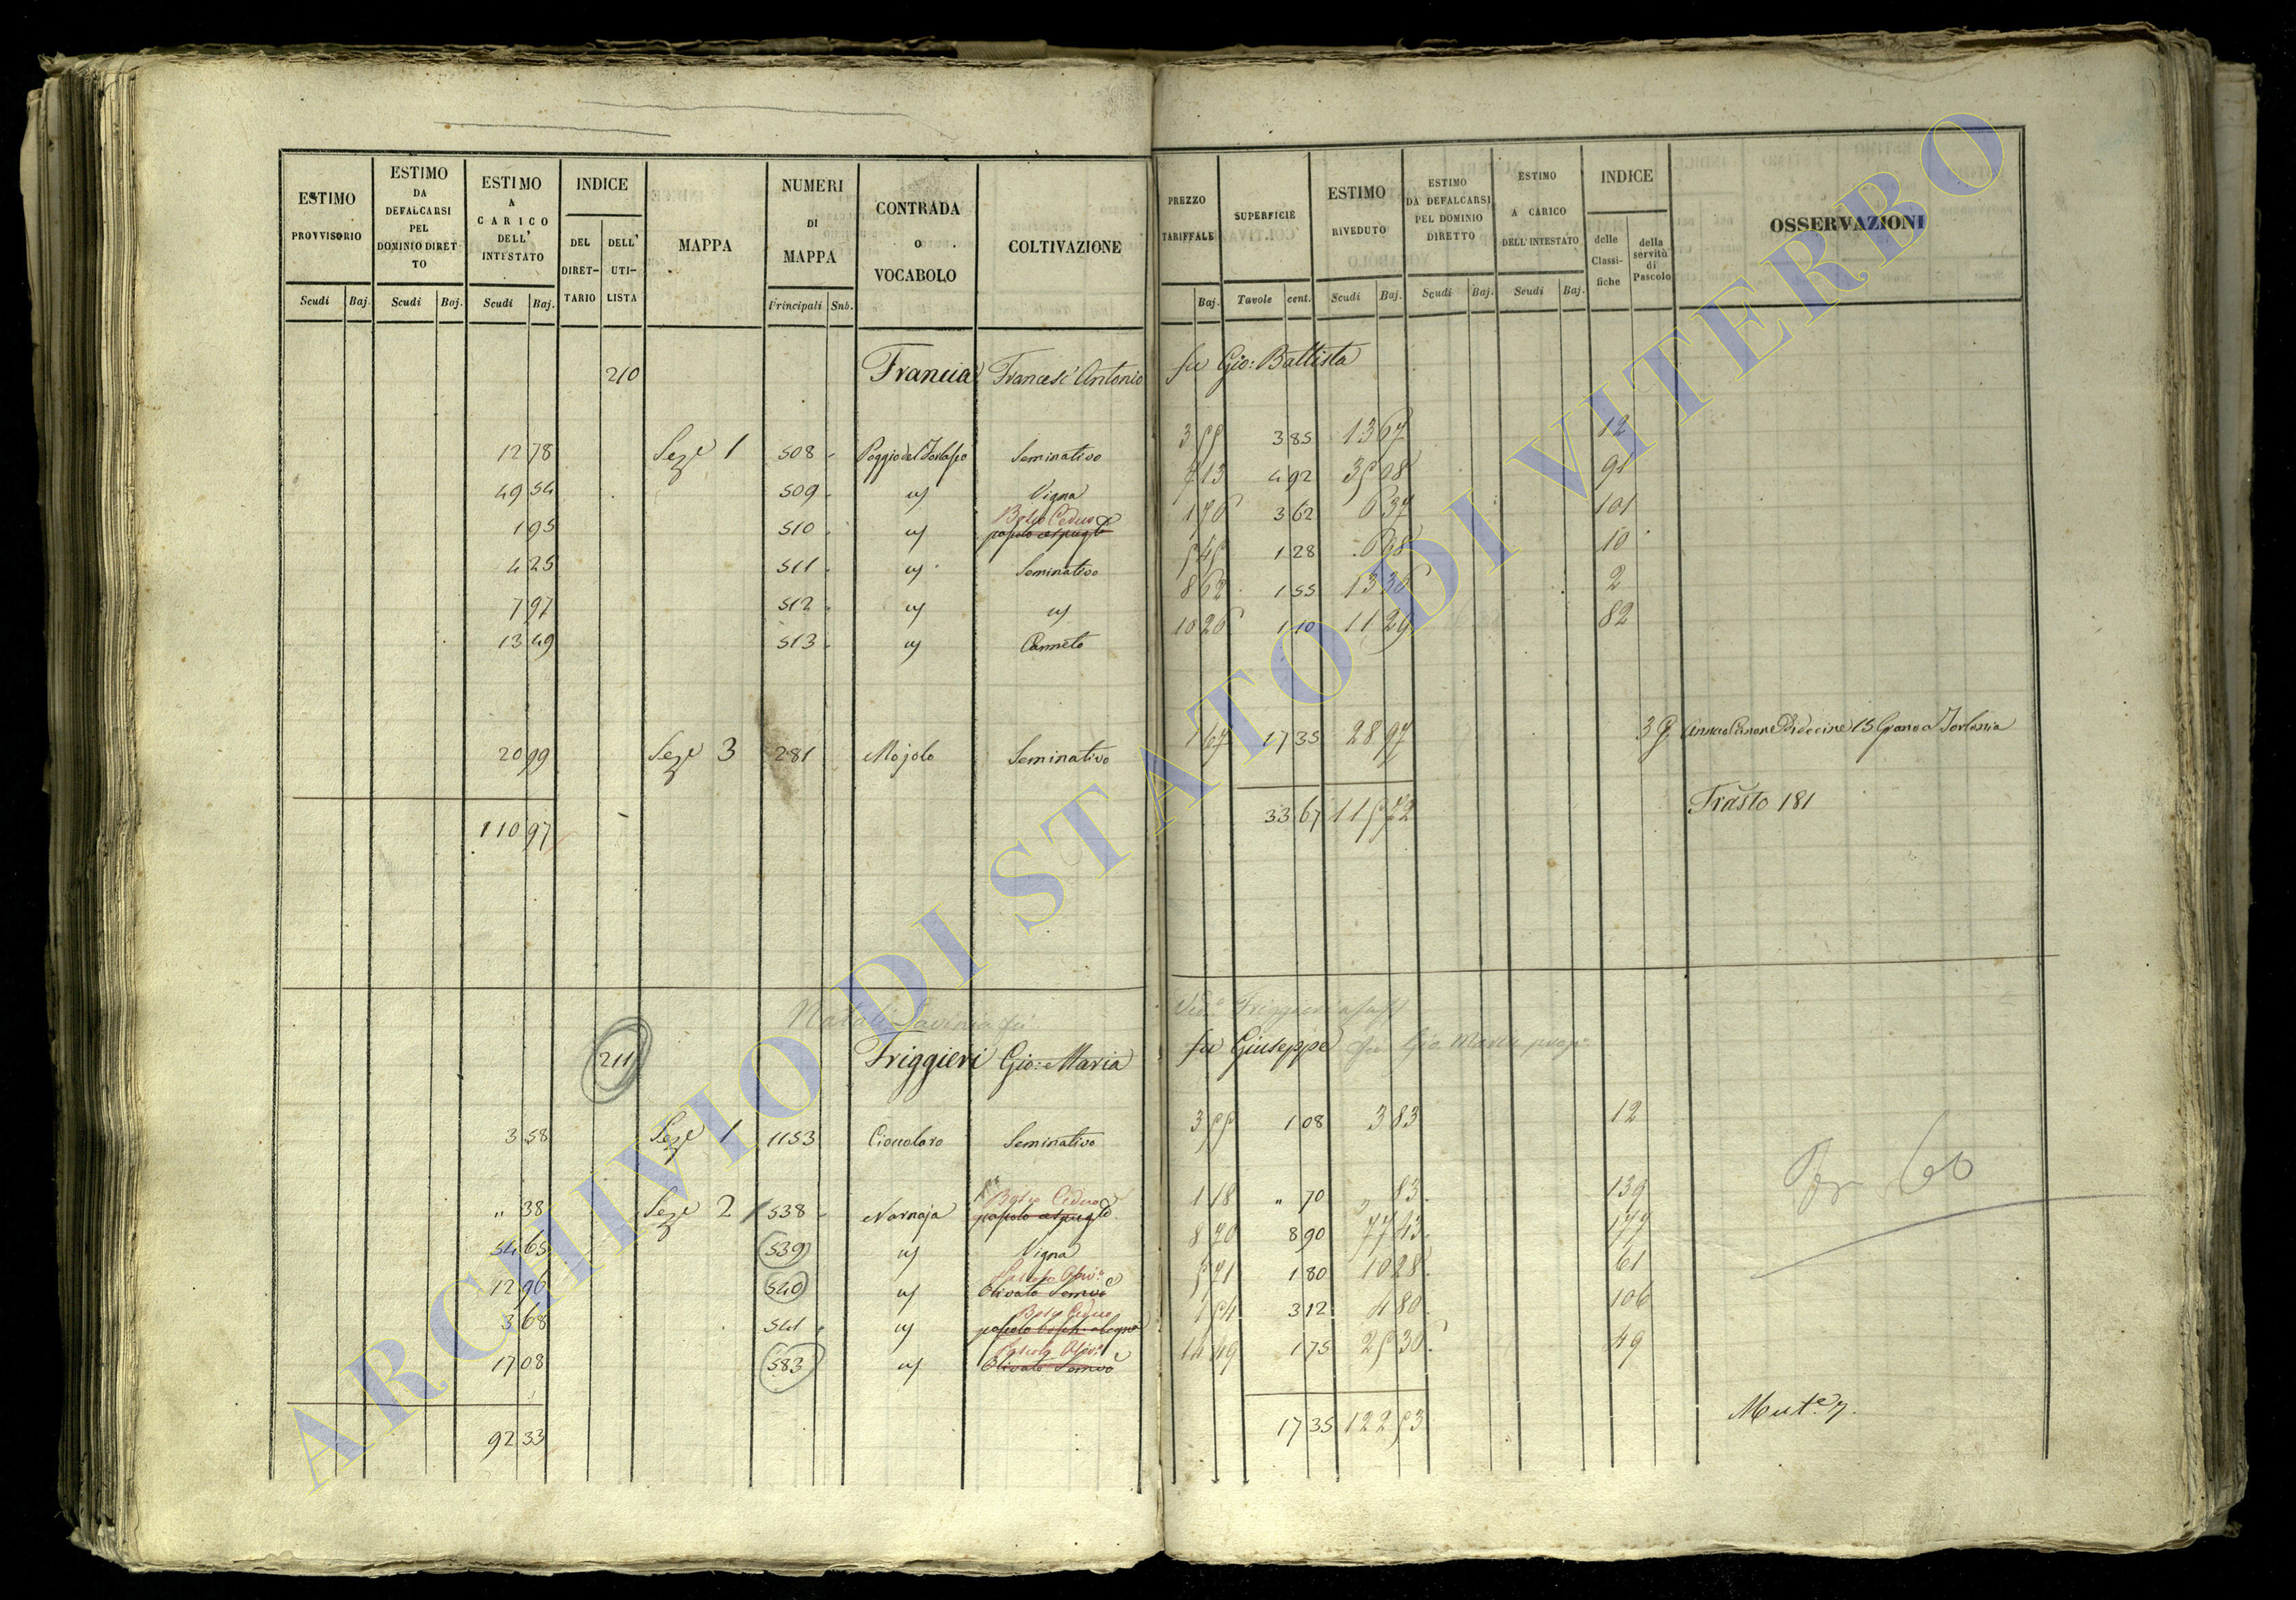 ESTIMO PROVVISORIO | ESTIMO DA DEFALCARSI PEL DOMINIO DIRETTO | ESTIMO A CARICO DELL' INTESTATO | INDICE | MAPPA | NUMERI DI MAPPA | CONTRADA O VOCABOLO | COLTIVAZIONE | PREZZO TARIFFALE | SUPERFICIE | ESTIMO RIVEDUTO | ESTIMO DA DEFALCARSI PEL DOMINIO DIRETTO | ESTIMO A CARICO DELL' INTESTATO | INDICE | OSSERVAZIONI
DEL DIRETTARIO | DELL' UTILISTA | delle Classifiche | della servitù di Pascolo
Scudi | Baj. | Scudi | Baj. | Scudi | Baj. | Principali | Sub. | Baj. | Tavole | cent. | Scudi | Baj. | Scudi | Baj. | Scudi | Baj.
210 Francia Francesc' Antonio fu Gio: Battista
12 78 Seze 1 508 Seminativo 3 55 3 85 13 67 12
49 54 509 " Vigna 7 13 4 92 35 08 91
1 95 510 " Bosco Ceduo 1 76 3 62 6 37 101
4 25 511 " Seminativo 5 45 1 28 6 98 10
7 97 512 " " 8 62 1 55 13 36 2
13 49 513 " Canneto 10 26 1 10 11 29 82
20 99 Seze 3 281 Mojolo Seminativo 1 67 17 35 28 97 3
110 97 33 67 115 72 Trasto 181
Natali Lavinia fu
211 Friggieri Gio: Maria fu Giuseppe
3 58 Seze 1 1153 Seminativo 3 55 1 08 3 83 12
" 38 Seze 2 538 Narnaja Bosco Ceduo 1 18 " 70 " 83 139
54 65 539 " Vigna 8 70 8 90 77 43 177
12 96 540 " Olivato Semvo 5 71 1 80 10 28 61
3 68 541 " Bosco Ceduo 1 54 3 12 4 80 106
17 08 583 " Olivato Semvo 14 49 1 75 25 36 49
92 33 17 35 122 53 Mut.e 7.
ARCHIVIO DI STATO DI VITERBO